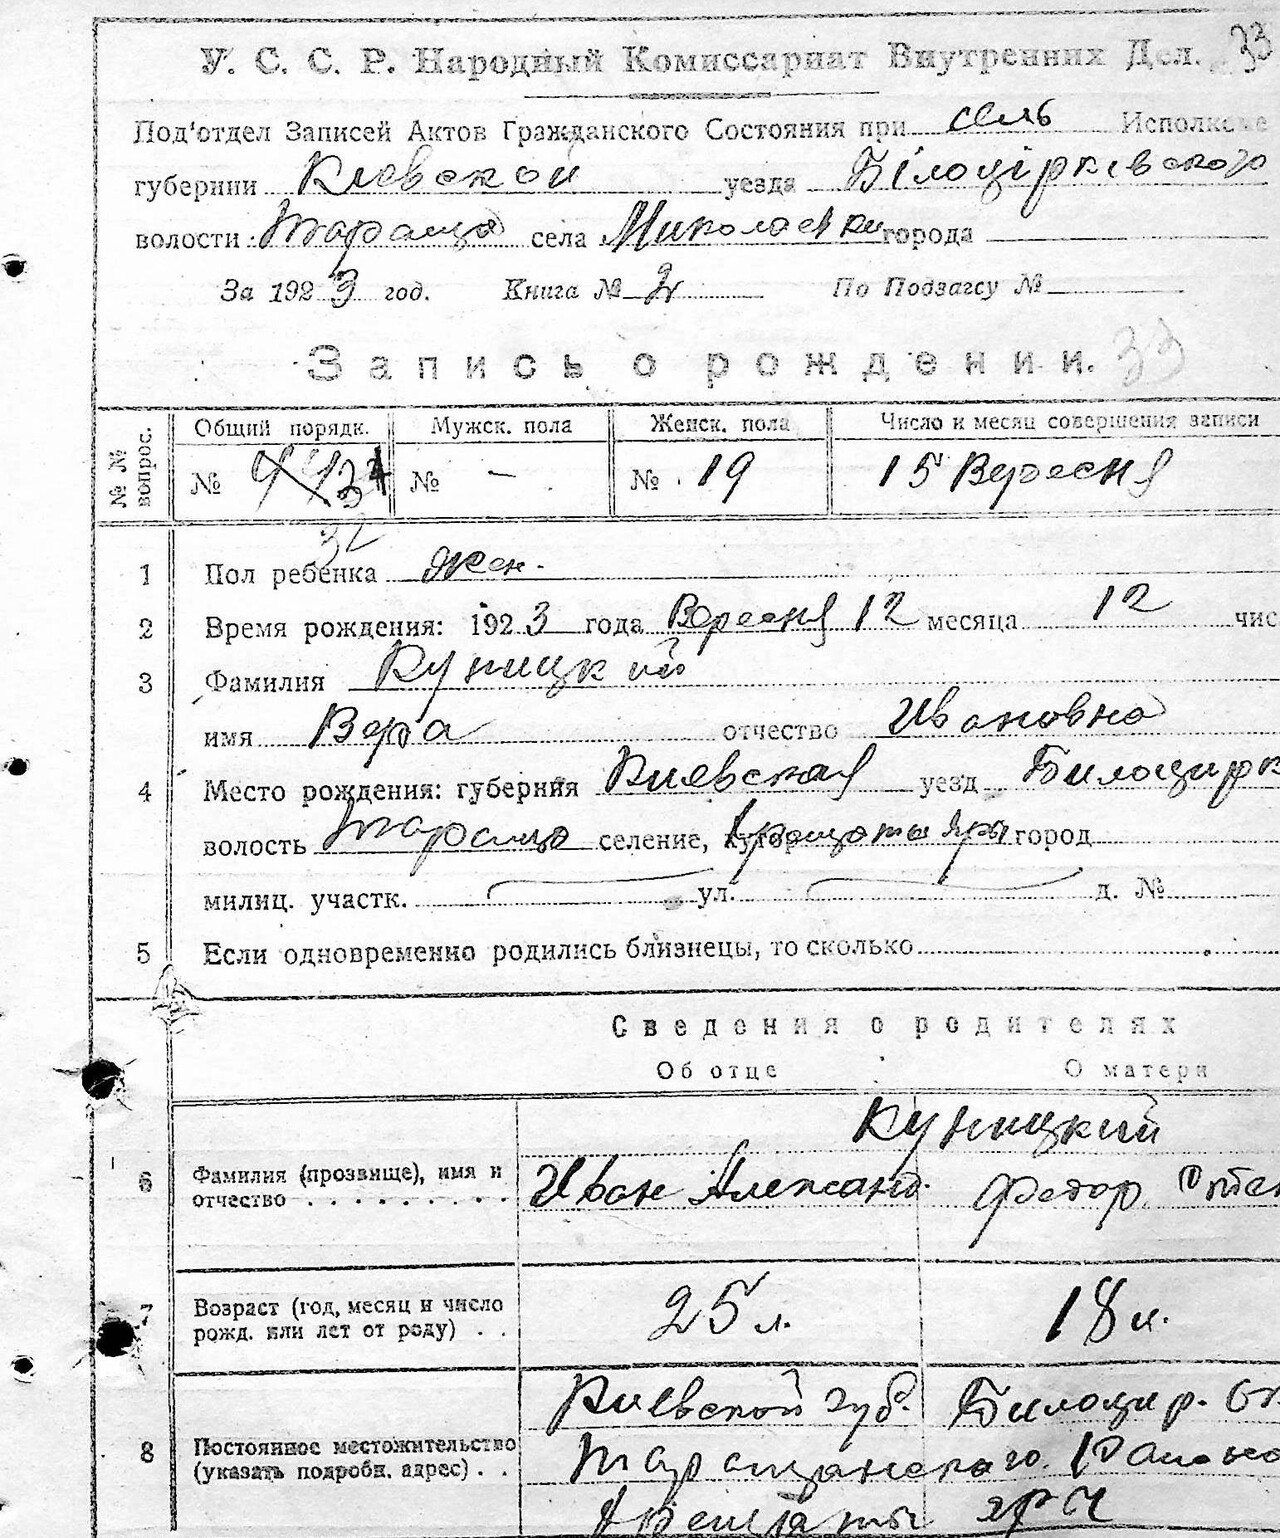 33
У. С. С. Р. Народный Комиссариат Внутренних Дел.
Под'отдел Записей Актов Гражданского Состояния при сель Исполкоме
губернии Киевской уезда Білоцірківского
волости Тараща села Миколаевки города
За 1923 год. Книга № 2 По Подзагсу №
Запись о рождении. 33
№ № вопрос. Общий порядк. Мужск. пола Женск. пола Число и месяц совершения записи
№ № — № 19 15 Вересня
32
1 Пол ребенка жен.
2 Время рождения: 1923 года Вересня 12 месяца 12 чис
3 Фамилия Куницкий
имя Вера отчество Ивановна
4 Место рождения: губерния Киевская уезд Билоцирк
волость Тараща селение, хутор яры город
милиц. участк. ул. д. №
5 Если одновременно родились близнецы, то сколько
Сведения о родителях
Об отце О матери
Куницкий
6 Фамилия (прозвище), имя и отчество Иван Александ. Федор.
7 Возраст (год, месяц и число рожд. или лет от роду) 25 л. 18 л.
8 Постоянное местожительство (указать подробн. адрес) Киевской губ. Билоцир. Ок
Таращанского Района
яры